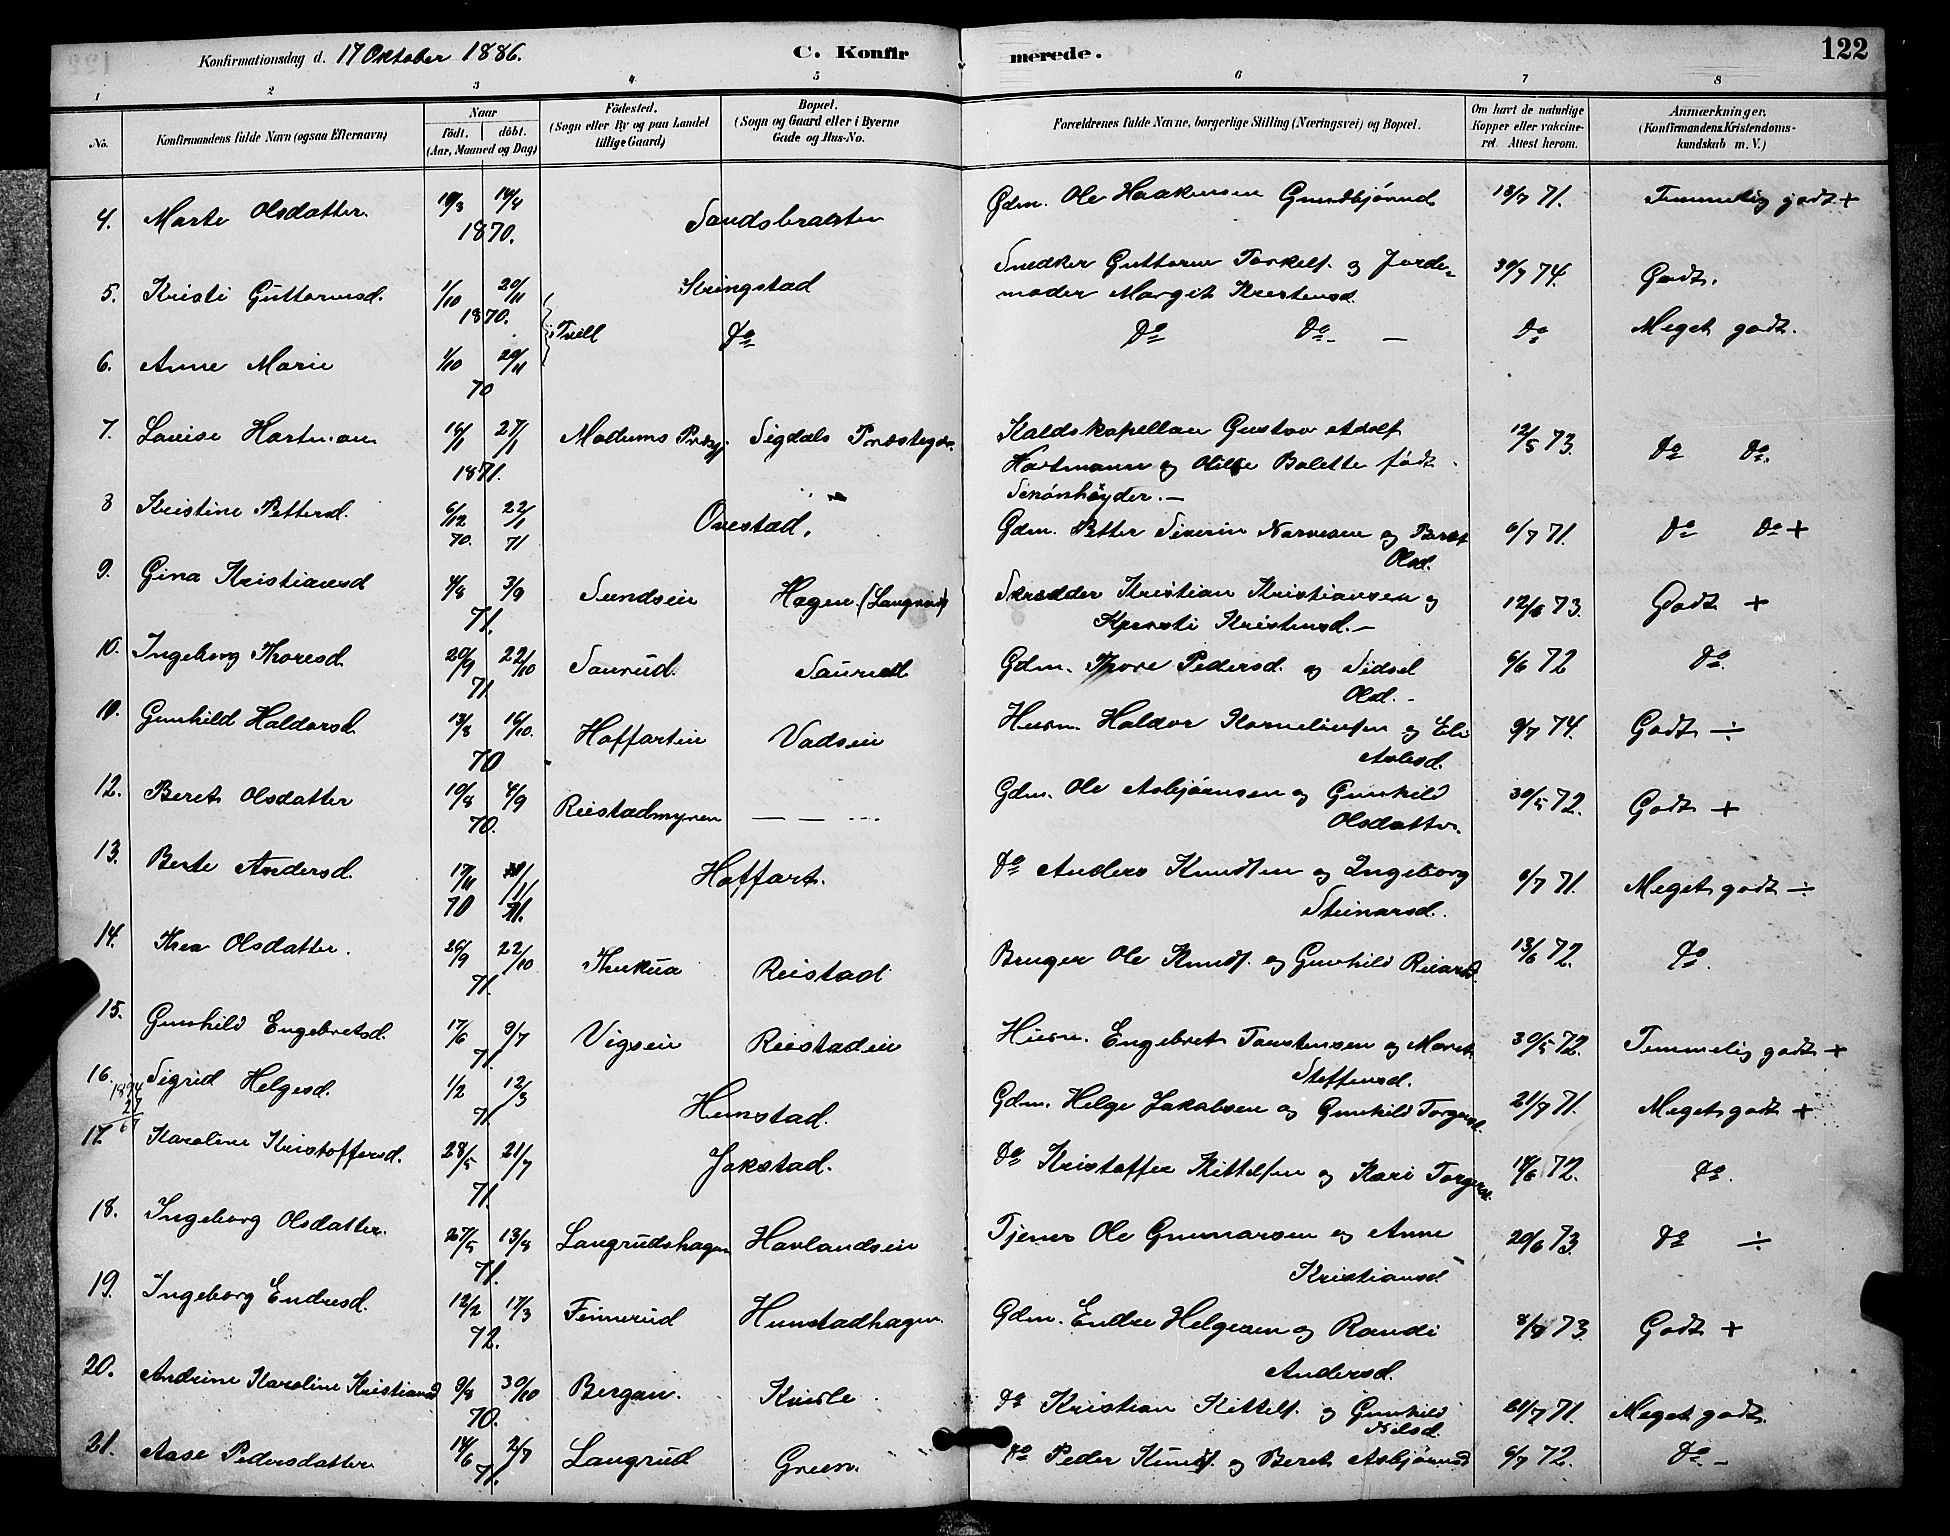 Konfirmationsdag d. 17 Oktober 1886.
C. Konfirmerede.
122
1 2 3 4 5 6 7 8
No.
Konfirmandens fulde Navn (ogsaa Efternavn)
Naar
født. døbt.
(Aar, Maaned og Dag)
Födested.
(Sogn eller By og paa Landet tillige Gaard)
Bopæl.
(Sogn og Gaard eller i Byerne Gade og Hus-No.
Forældrenes fulde Navne, borgerlige Stilling (Næringsvei) og Bopæl.
Om havt de naturlige Kopper eller vakcineret. Attest herom.
Anmærkninger,
(Konfirmandens Kristendomskundskab m. V.)
4. Marte Olsdatter 19/3 14/4 1870. Sandsbraaten Gdm. Ole Haakensen 18/7 71. Temmelig godt +
5. Kristi Guttormsd. 1/10 20/11 1870. Kringstad Snedker Guttorm Torkels. og Jordemoder Margit Kristensd. 30/7 74. Godt.
6. Anne Marie 1/10 20/11 70 Tvill Do Do Do - Do Meget godt.
7. Louise Hartman 16/1 27/1 1871. Modums Præg. Sigdals Præstegr. Kaldskapellan Gustav Adolf Hartmann og Balette født 12/5 73. Do Do.
8 Kristine Pettersd. 6/12 70. 22/1 71 Ovestad. Gdm. Petter Severin Narvesen og Berit Olsd. 6/7 71. Do Do +
9. Gina Kristiansd 4/8 3/9 71. Sundsein Hagen (Langrud) Skredder Kristian Kristiansen og Kjersti Kristensd. 12/6 73. Godt +
10. Ingeborg Thoresd. 20/9 22/10 71. Saurud. Saurud Gdm. Thore Pedersd. og Sidsel Olsd. 6/6 72 Do.
10. Gunhild Haldorsd. 13/8 16/10. 70 Hoffartein Vadsein Husm. Haldor Kornelius­sen og Eli Asle­sd. 9/7 74. Godt ÷
12. Beret Olsdatter 19/8 4/9 70. Reistadmyren — — — Gdm. Ole Asbjørnsen og Gunhild Olsdatter. 30/5 72. Godt +
13. Berte Andersd. 17/11 70 1/1 71. Hoffart. Do Anders Knudsen og Ingeborg Steinarsd. 6/7 71. Meget godt ÷
14. Thea Olsdatter. 26/9 22/10 71. Reistad Bruger Ole Knuds. og Gunhild 13/6 72. Do.
15. Gunhild Engebretsd. 17/6 9/7 71. Vigsein Reistadein Husm. Engebret Torstensen og Maret Steffensd. 30/5 72. Temmelig godt +
16. Sigrid Helgesd. 1/2 12/3 71. Hunstad. Gdm. Helge Jakobsen og Gunhild Torgersd. 21/7 71. Meget godt +
17 Karoline Kristoffersd. 28/5 21/7 71. Jokstad. Do Kristoffer Kittelsen og Kari Torgersd. 18/6 72. Do.
18. Ingeborg Olsdatter. 27/5 13/8 71. Langrudshagen Hovlandsein Tjener Ole Gunnarsen og Anne Kristiansd 20/6 73. Do ÷
19. Ingeborg Endresd. 12/2 17/3 72. Finnerud Hunstadhagen. Gdm. Endre Helgesen og Randi Andersd. 8/7 73. Godt +
20. Andrine Karoline Kristiansd 9/8 30/10 70. Bergan. Kvisle Do Kristian Kittels. og Gunhild Nilsd. 21/7 71. Meget godt.
21. Aase Pedersdatter 14/6 2/7 71. Langrud Green. Do Peder Knuds. og Beret Asbjørnsd 6/7 72. Do. -